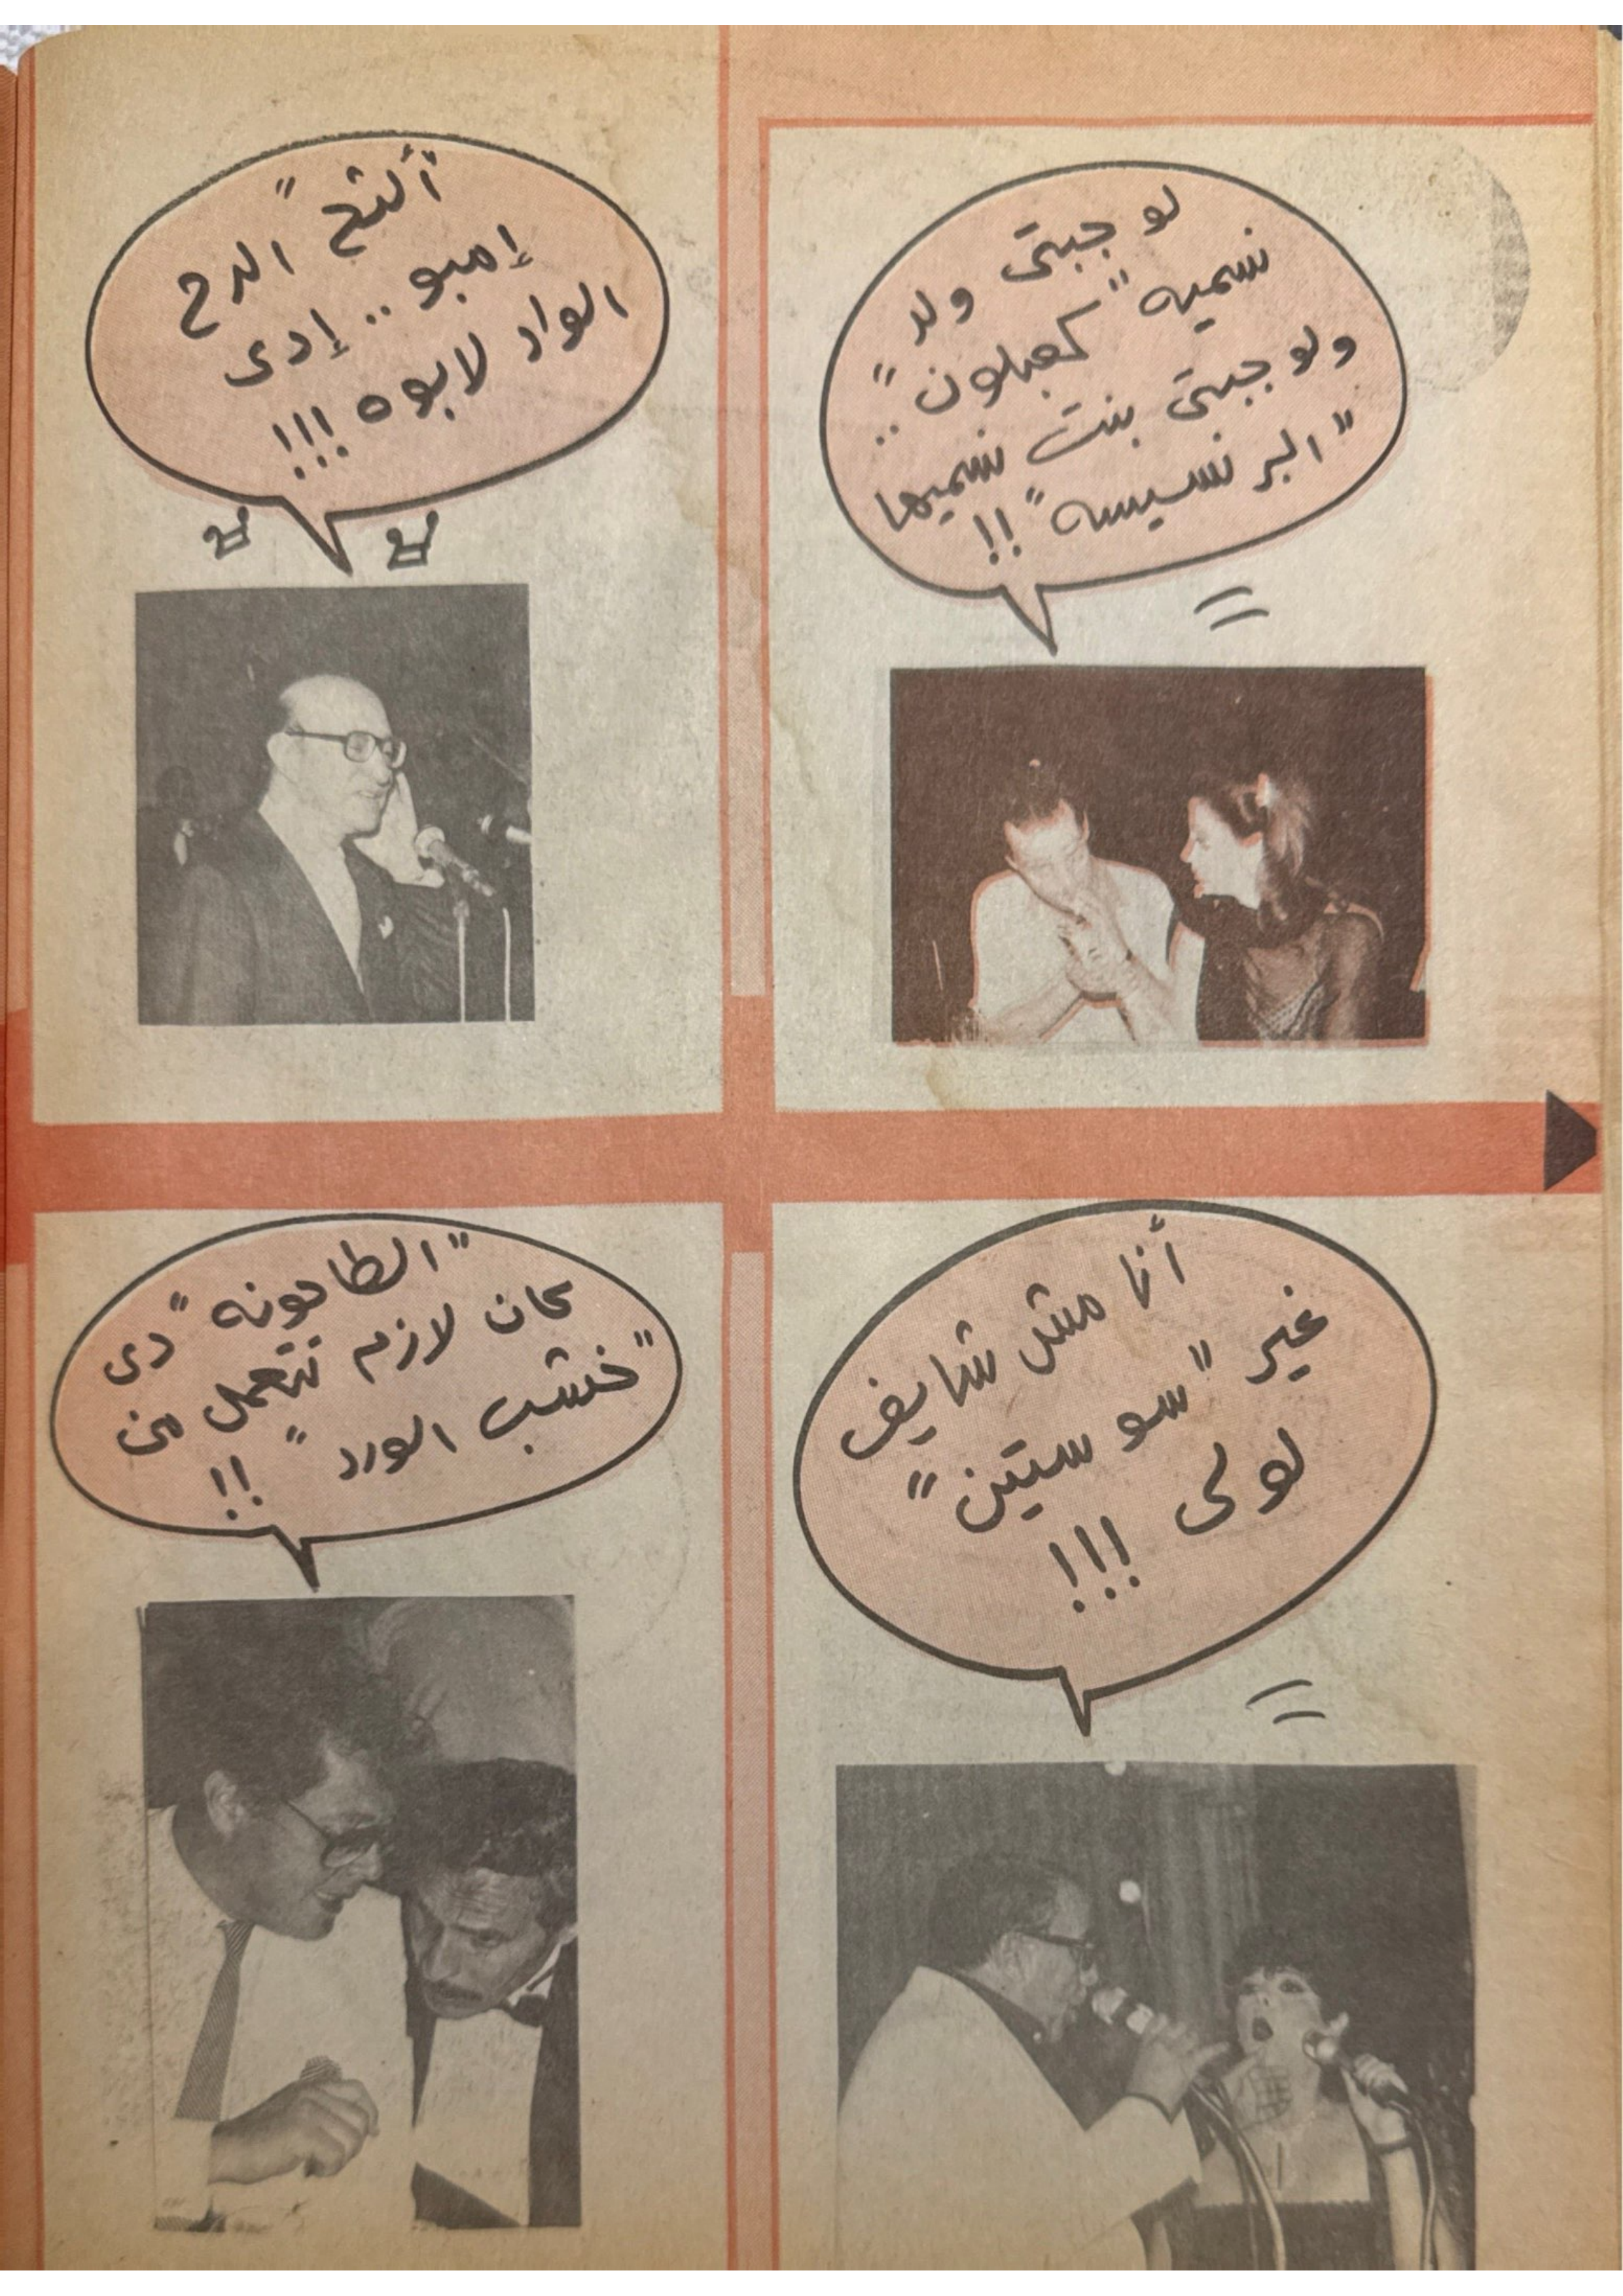 لو جبتى ولد
نسميه "كعبلون"..
ولو جبتى بنت نسميها
"البرنسيسه"!!
"ألتح" الدح
إمبو.. إدى
الواد لابوه!!!
أنا مش شايف
غير "سوستين"
لولى!!!
"الطاحونه" دى
كان لازم تتعمل من
"خشب الورد"!!